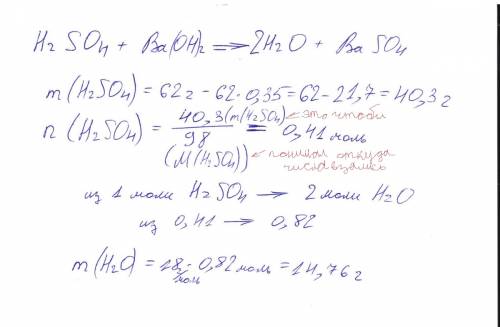 H₂SO₄ + Ba(OH)₂ ⟹ 2H₂O + BaSO₄
m(H₂SO₄) = 62г - 62·0,35 = 62 - 21,7 = 40,3г
n(H₂SO₄) = 40,3 (m(H₂SO₄)) ← это чтобы
98 = 0,41 моль
(M(H₂SO₄)) ← понимал откуда
числа взялись
из 1 моли H₂SO₄ → 2 моли H₂O
из 0,41 → 0,82
m(H₂O) = 18 г/моль · 0,82 моль = 14,76 г